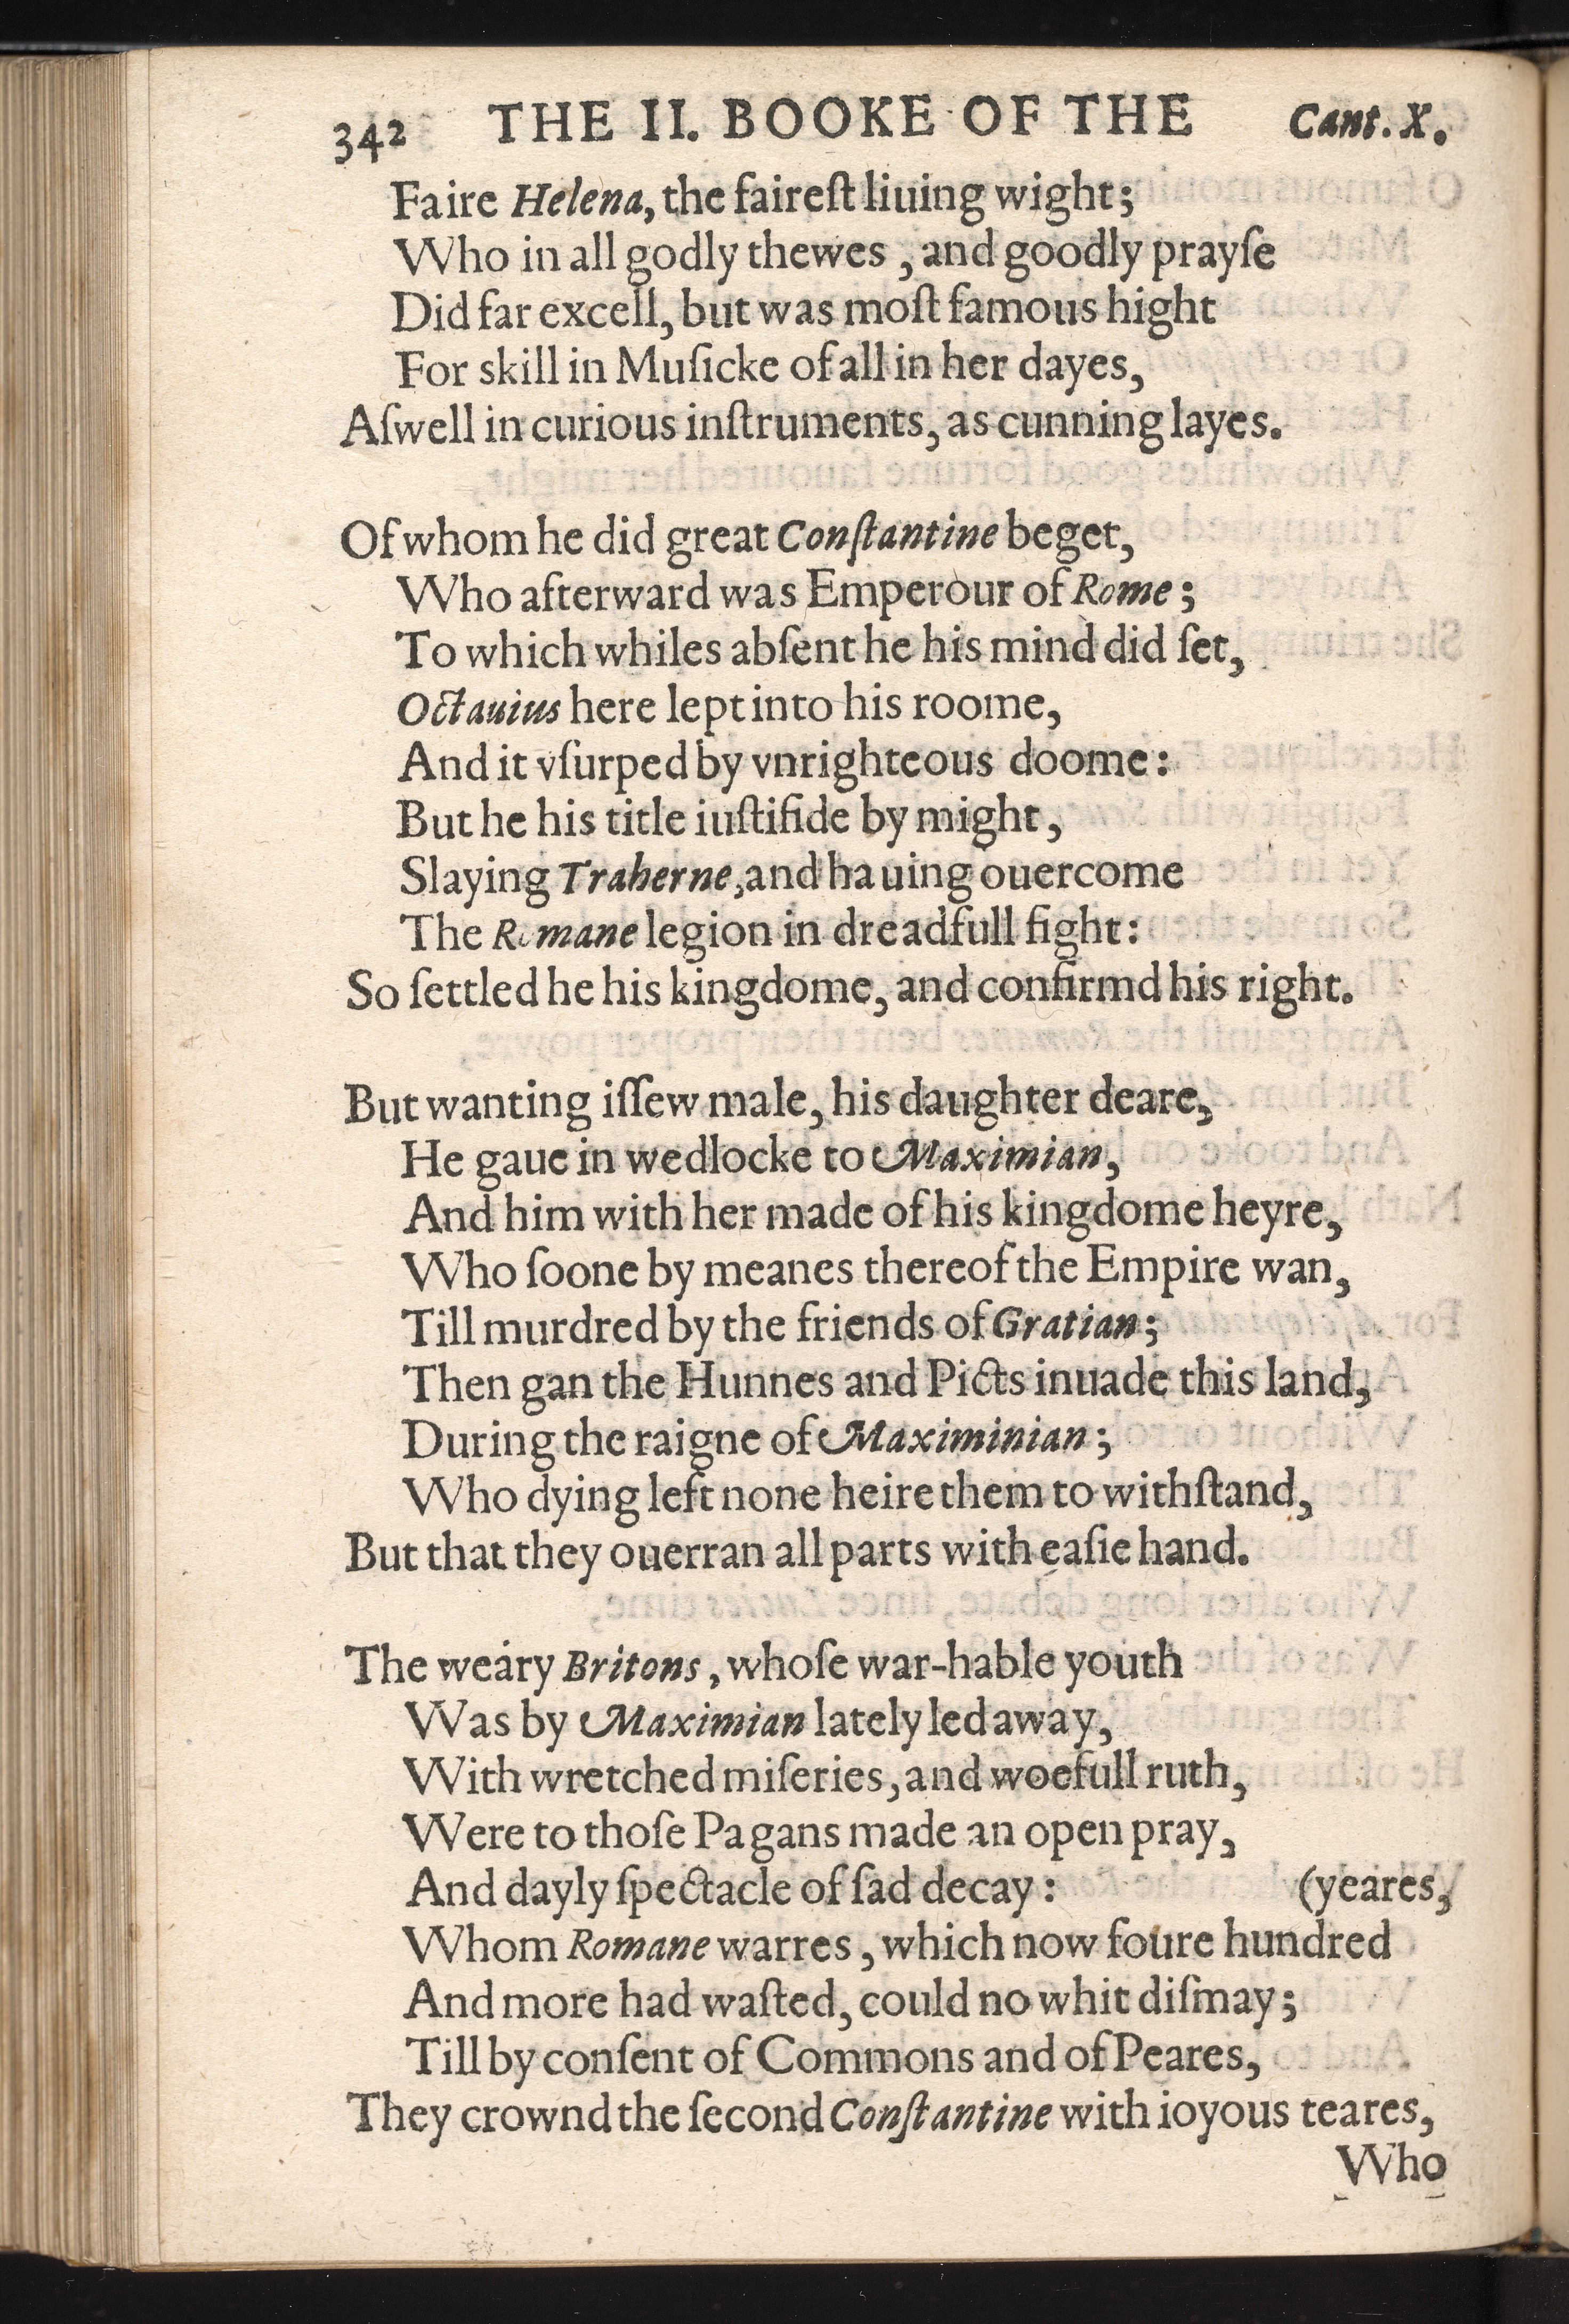 342 THE II. BOOKE OF THE Cant. X.
Faire Helena, the faireſt liuing wight;
Who in all godly thewes, and goodly prayſe
Did far excell, but was moſt famous hight
For skill in Muſicke of all in her dayes,
Aſwell in curious inſtruments, as cunning layes.
Of whom he did great Conſtantine beget,
Who afterward was Emperour of Rome;
To which whiles abſent he his mind did ſet,
Octauius here lept into his roome,
And it vſurped by vnrighteous doome:
But he his title iuſtifide by might,
Slaying Traherne, and hauing ouercome
The Romane legion in dreadfull fight:
So ſettled he his kingdome, and confirmd his right.
But wanting iſſew male, his daughter deare,
He gaue in wedlocke to Maximian,
And him with her made of his kingdome heyre,
Who ſoone by meanes thereof the Empire wan,
Till murdred by the friends of Gratian;
Then gan the Hunnes and Picts inuade this land,
During the raigne of Maximinian;
Who dying left none heire them to withſtand,
But that they ouerran all parts with eaſie hand.
The weary Britons, whoſe war-hable youth
Was by Maximian lately led away,
With wretched miſeries, and woefull ruth,
Were to thoſe Pagans made an open pray,
And dayly ſpectacle of ſad decay: (yeares,
Whom Romane warres, which now foure hundred
And more had waſted, could no whit diſmay;
Till by conſent of Commons and of Peares,
They crownd the ſecond Conſtantine with ioyous teares,
Who